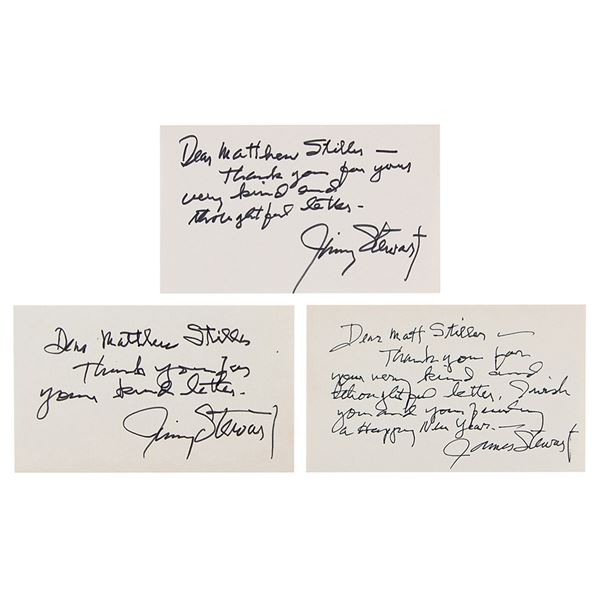 Dear Matthew Stiller —
Thank you for your
very kind and
thoughtful letter.
Jimmy Stewart
Dear Matthew Stiller
Thank you for
your kind letter.
Jimmy Stewart
Dear Matt Stiller —
Thank you for
your very kind and
thoughtful letter. I wish
you and your family
a Happy New Year. —
James Stewart